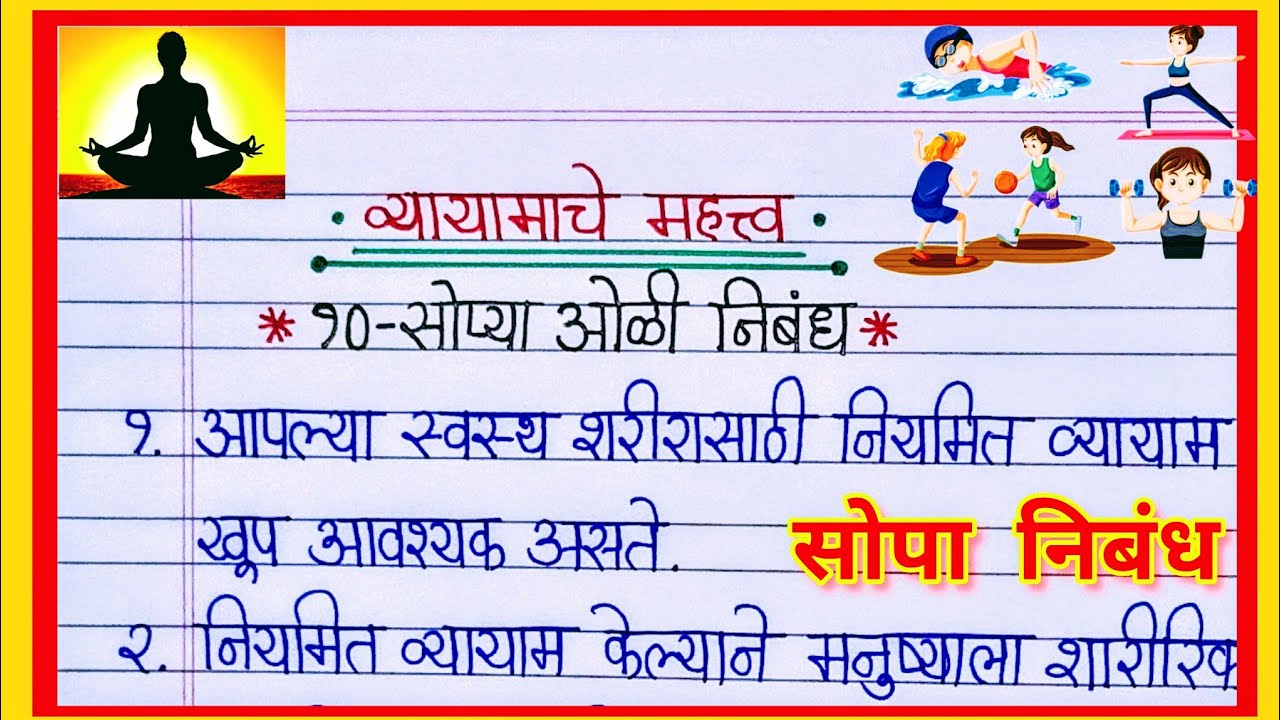 व्यायामाचे महत्त्व
१०-सोप्या ओळी निबंध
१. आपल्या स्वस्थ शरीरासाठी नियमित व्यायाम
खूप आवश्यक असते.
सोपा निबंध
२. नियमित व्यायाम केल्याने मनुष्याला शारीरिक